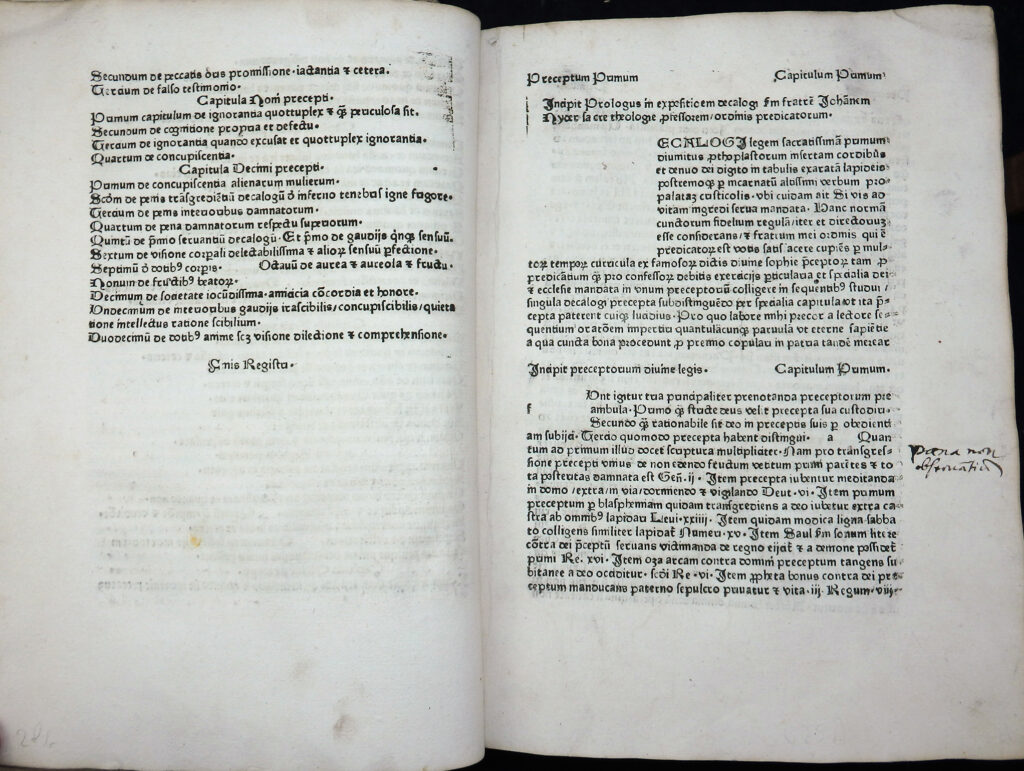 Secundum de peccatis oris promissione·iactantia ⁊ cetera.
Tercium de falso testimonio·
Capitula Noni precepti·
Primum capitulum de ignorantia quottuplex ⁊ qꝫ periculosa sit.
Secundum de cognitione propria et defectu·
Tercium de ignorantia quando excusat et quottuplex ignorantia.
Quartum de concupiscentia·
Capitula Decimi precepti·
Primum de concupiscentia alienarum mulierum·
Scōm de penis trāsgrediētiū decalogū ō inferno tenebris igne frigore·
Tercium de penis interioribus damnatorum·
Quartum de pena damnatorum respectu superiorum·
Quintū de p̄mo seruantiū decalogū· Et p̄mo de gaudijs qnqꝫ sensuū.
Sextum de visione corpali delectabilissima ⁊ alioꝝ sensuū ꝑfectione.
Septimū ō dotibꝰ corpis· Octauū de aurea ⁊ aureola ⁊ fructu·
Nonum de fructibꝰ beatoꝝ·
Decimum de societate iocūdissima·amicicia cōcordia et honore·
Undecimum de interioribus gaudijs irascibilis/concupiscibilis/quieta
tione intellectus ratione scibilium·
Duodecimū de dotibꝰ anime scꝫ visione dilectione ⁊ comprehensione·
Finis Registri·
Preceptum Primum Capitulum Primum
Incipit Prologus in expositiōem decalogi fm fratrē Johānem
Nyder sacre theologie ꝓfessorem/ordinis predicatorum·
ECALOGI legem sacratissimā primum
diuinitus ꝓthoplastorum insertam cordibus
et denuo dei digito in tabulis exaratā lapideis
postremoqꝫ ꝑ incarnatū altissimi verbum pro
palataꝫ rusticolis·vbi cuidam ait Si vis ad
vitam ingredi serua mandata· Hanc normā
cunctorum fidelium regulā/iter et directoriuꝫ
esse considerans/⁊ fratrum mei ordinis qui ē
predicatoꝝ est votis satisfacere cupiēs ꝑ mul-
toꝝ tempoꝝ curricula ex famosoꝝ dictis diuine sophie p̄ceptoꝝ tam ꝓ
predicātium qꝫ pro confessoꝝ debitis exercicijs ꝑticularia et specialia dei
et ecclesie mandata in vnum preceptorum colligere in sequentibꝰ studui/
singula decalogi precepta subdistinguēdo per specialia capitula vt ita p̄-
cepta paterent cuiqꝫ lucidius·Pro quo labore mihi precor a lectore se-
quentium oratōem impertiri quantulācunqꝫ paruula vt eterne sapiētie
a qua cuncta bona procedunt ꝓ premio copulari in patria tandē merear
Incipit preceptorum diuine legis· Capitulum Primum.
Unt igitur tria principaliter prenotanda preceptorum pre
f ambula·Primo qꝫ stricte deus velit precepta sua custodiri·
Secundo qꝫ rationabile sit deo in preceptis suis ꝑ obedienti
am subijci·Tercio quomodo precepta habent distingui· a Quan
tum ad primum illud docet scriptura multipliciter·Nam pro transgres-
sione precepti vnius de non edendo fructum vetitum primi parētes ⁊ to
ta posteritas damnata est Gen̄·ij· Item precepta iubentur meditanda
in domo/extra/in via/dormiendo ⁊ vigilando Deut·vi·Item primum
preceptum ꝑ blasphemiam quidam transgrediens a deo iubetur extra ca
stra ab omnibꝰ lapidari Leui·xxiiij· Item quidam modica ligna sabba
to colligens similiter lapidat̄ Numeri·xv·Item Saul fm sonum litere
cōtra dei p̄ceptū seruans victimanda de regno eijcit̄ ⁊ a demone possidet̄
primi Re·xvi·Item oza arcam contra domini preceptum tangens su
bitanee a deo occiditur·scōi Re·vi·Item ꝓpheta bonus contra dei pre
ceptum manducans paterno sepulcro priuatur ⁊ vita·iij·Regum·xiij·
pœna non
obseruantiū
281.